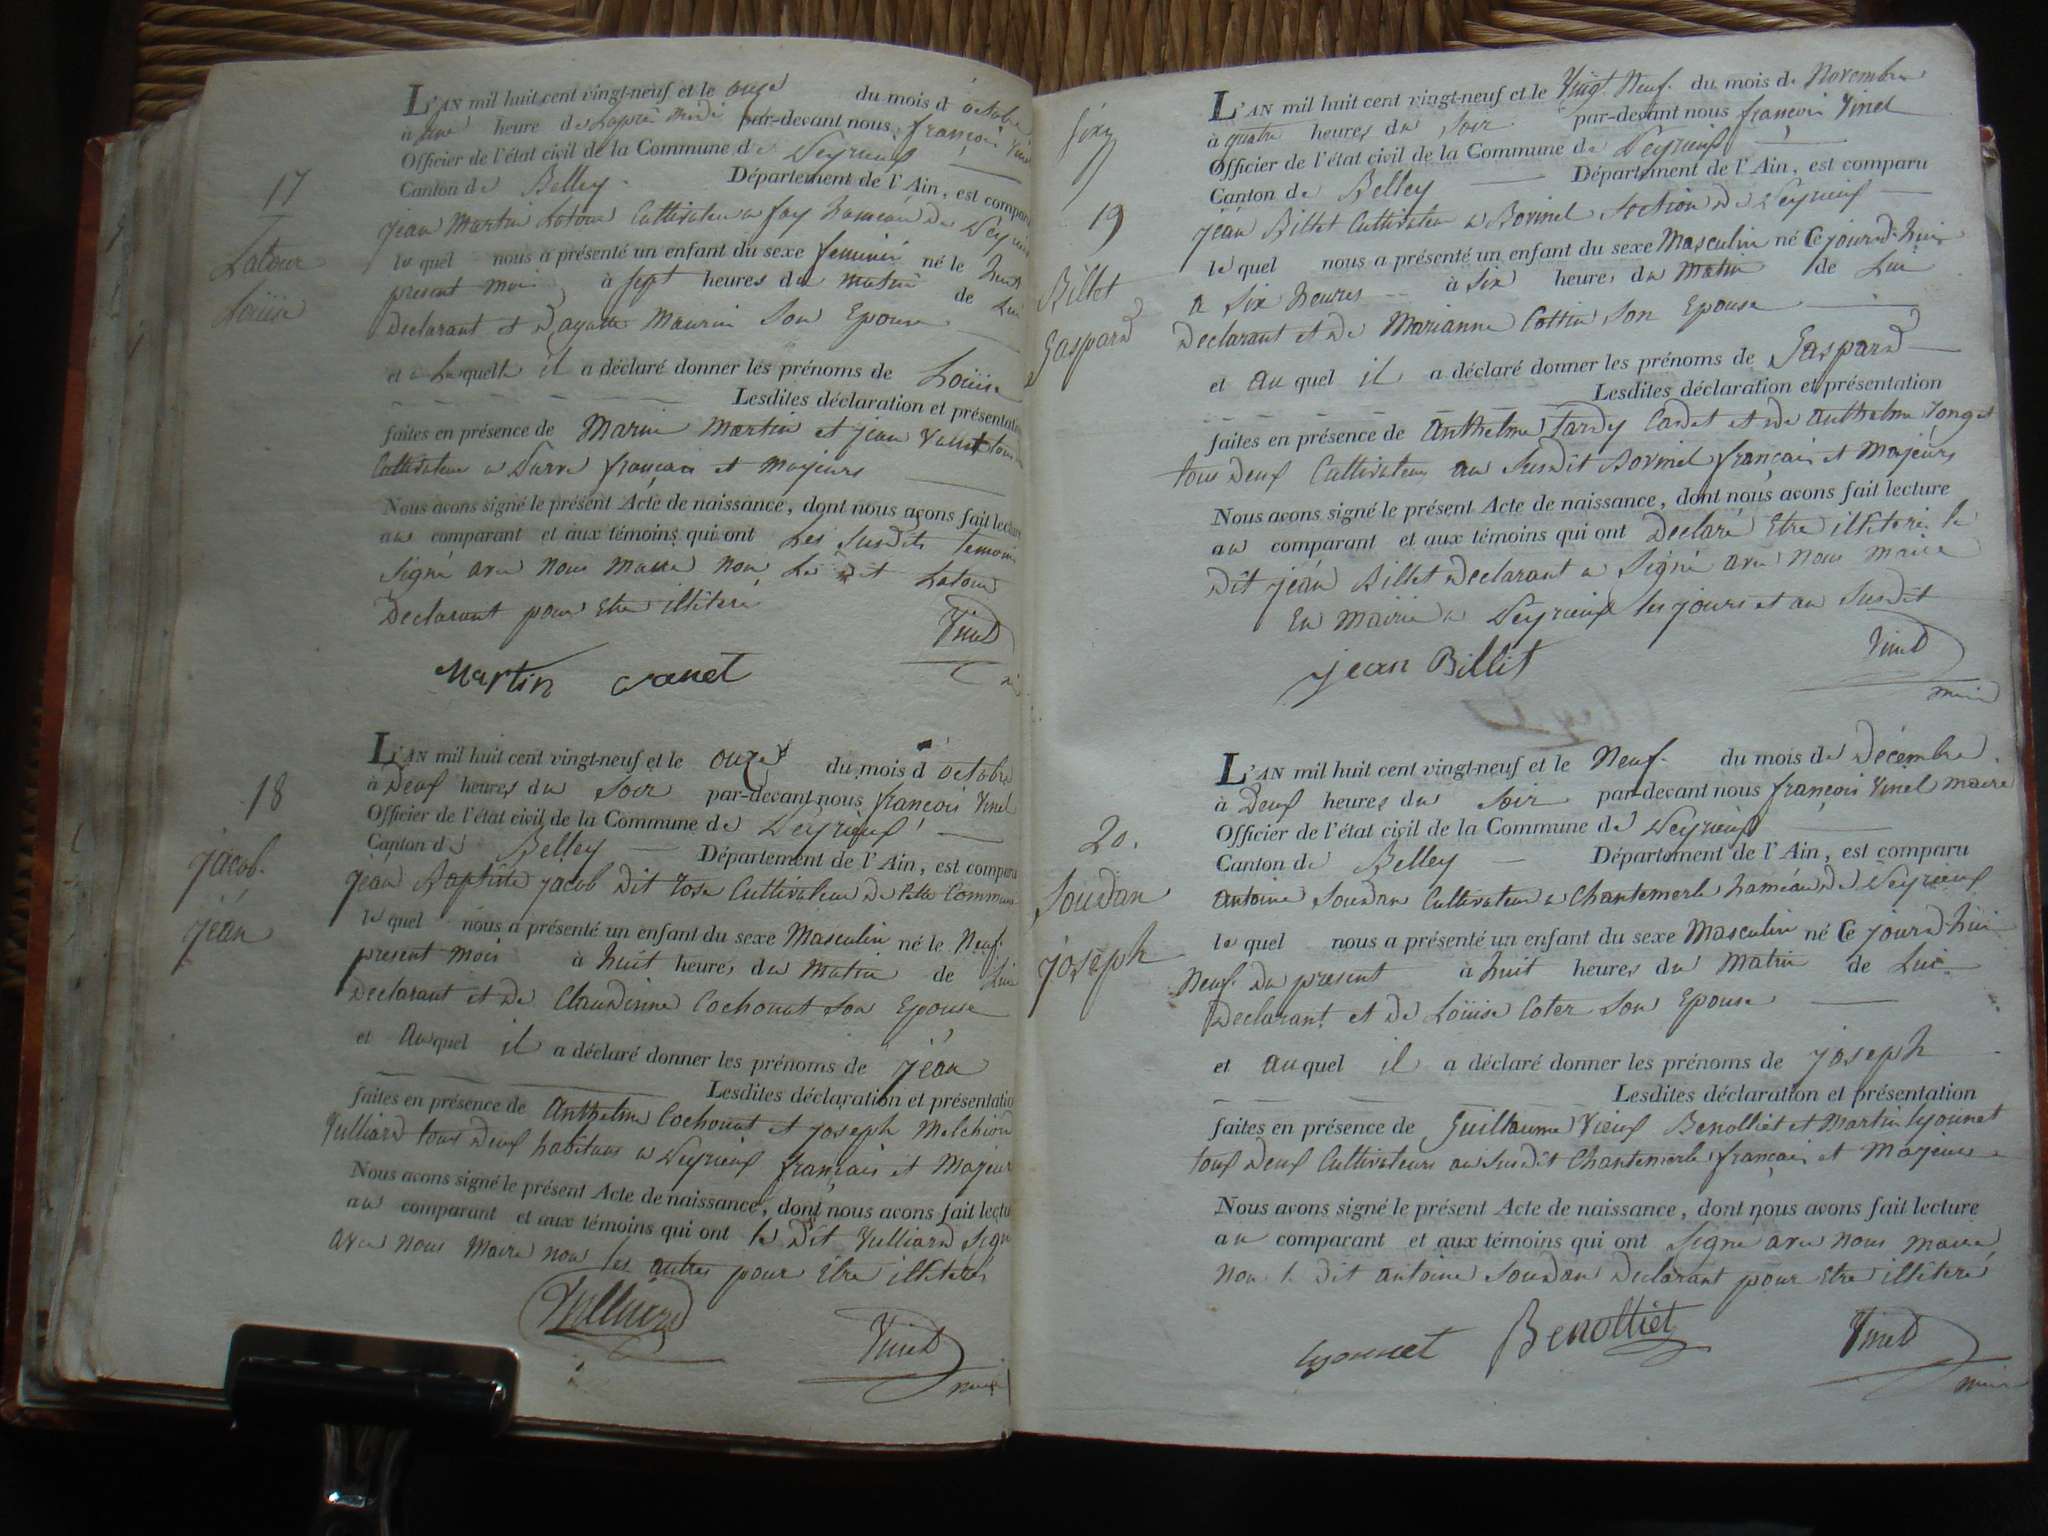 17
Latour
Louise
L'AN mil huit cent vingt-neuf et le onze du mois d octobre
à une heure de Lapres midi par-devant nous françois Vinet
Officier de l'état civil de la Commune de Peyrieux
Canton de Belley Département de l'Ain, est comparu
jean Martin Latour Cultivateur a fay hameau de Peyrieux
lequel nous a présenté un enfant du sexe feminin né le huit
present mois à sept heures du matin de Lui
Declarant et D'agatte Maurin Son Epouse
et a Laquelle il a déclaré donner les prénoms de Louise
Lesdites déclaration et présentation
faites en présence de Marin Martin et jean
Cultivateur a français et Majeurs
Nous avons signé le présent Acte de naissance, dont nous avons fait lecture
au comparant et aux témoins qui ont Les Susdits temoins
Signé avec Nous Maire Non Le dit Latour
Declarant pour Etre illiteré
Martin Vinet
18
jacob
jean
L'AN mil huit cent vingt-neuf et le onze du mois d octobre
à Deux heures du Soir par-devant nous françois Vinet
Officier de l'état civil de la Commune de Peyrieux
Canton de Belley Département de l'Ain, est comparu
jean Baptiste jacob dit Cultivateur de Cette Commune
lequel nous a présenté un enfant du sexe Masculin né le Neuf
present mois à huit heures du Matin de Lui
Declarant et de Claudinne Cochonat Son Epouse
et Auquel il a déclaré donner les prénoms de jean
Lesdites déclaration et présentation
faites en présence de Anthelme Cochonat et joseph Melchior
Vulliard tous Deux habitans a Peyrieux français et Majeurs
Nous avons signé le présent Acte de naissance, dont nous avons fait lecture
au comparant et aux témoins qui ont le Dit Vulliard Signé
avec nous Maire non les autres pour Etre illiterés
Vulliard Vinet
maire
19
Billet
Gaspard
L'AN mil huit cent vingt-neuf et le Vingt Neuf du mois de Novembre
à quatre heures du Soir par-devant nous françois Vinet
Officier de l'état civil de la Commune de Peyrieux
Canton de Belley Département de l'Ain, est comparu
jean Billet Cultivateur a Bovinel Section de Peyrieux
lequel nous a présenté un enfant du sexe Masculin né Ce jourd'hui
a Six heures à Six heures du Matin de Lui
Declarant et de Marianne Cottin Son Epouse
et Auquel il a déclaré donner les prénoms de Gaspard
Lesdites déclaration et présentation
faites en présence de Anthelme Tardy Cadet et de Anthelme
tous Deux Cultivateurs au Susdit Bovinel français et Majeurs
Nous avons signé le présent Acte de naissance, dont nous avons fait lecture
au comparant et aux témoins qui ont Declaré Etre illiterés le
Dit jean Billet Declarant a Signé avec Nous Maire
En Mairie a Peyrieux les jours et an Susdit
jean Billit Vinet
maire
20.
Soudan
joseph
L'AN mil huit cent vingt-neuf et le Neuf du mois de Décembre
à Deux heures du Soir par-devant nous françois Vinet maire
Officier de l'état civil de la Commune de Peyrieux
Canton de Belley Département de l'Ain, est comparu
Antoine Soudan Cultivateur a Chantemerle hameau de Peyrieux
lequel nous a présenté un enfant du sexe Masculin né Ce jourd'hui
Neuf du present à huit heures du Matin de Lui
Declarant et de Louise Coter Son Epouse
et Auquel il a déclaré donner les prénoms de joseph
Lesdites déclaration et présentation
faites en présence de Guillaume Vieux Benolliet et Martin Lyonnet
tous Deux Cultivateurs au Susdit Chantemerle français et Majeurs
Nous avons signé le présent Acte de naissance, dont nous avons fait lecture
au comparant et aux témoins qui ont Signé avec Nous Maire
Non le dit Antoine Soudan Declarant pour Etre illiteré
Lyonnet Benolliet Vinet
maire